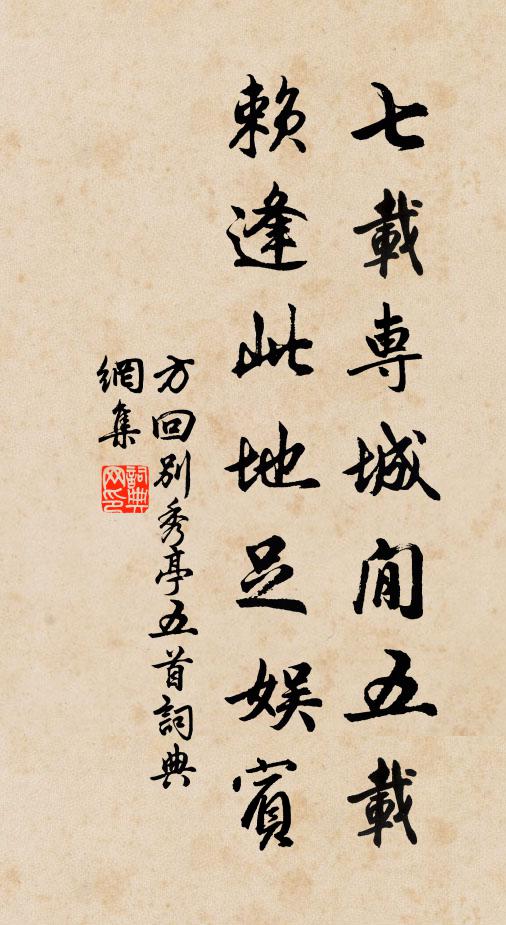 七載専城閒五載
賴逢此地足娛賓
方回別秀亭五首詞典
網集
詞典网印